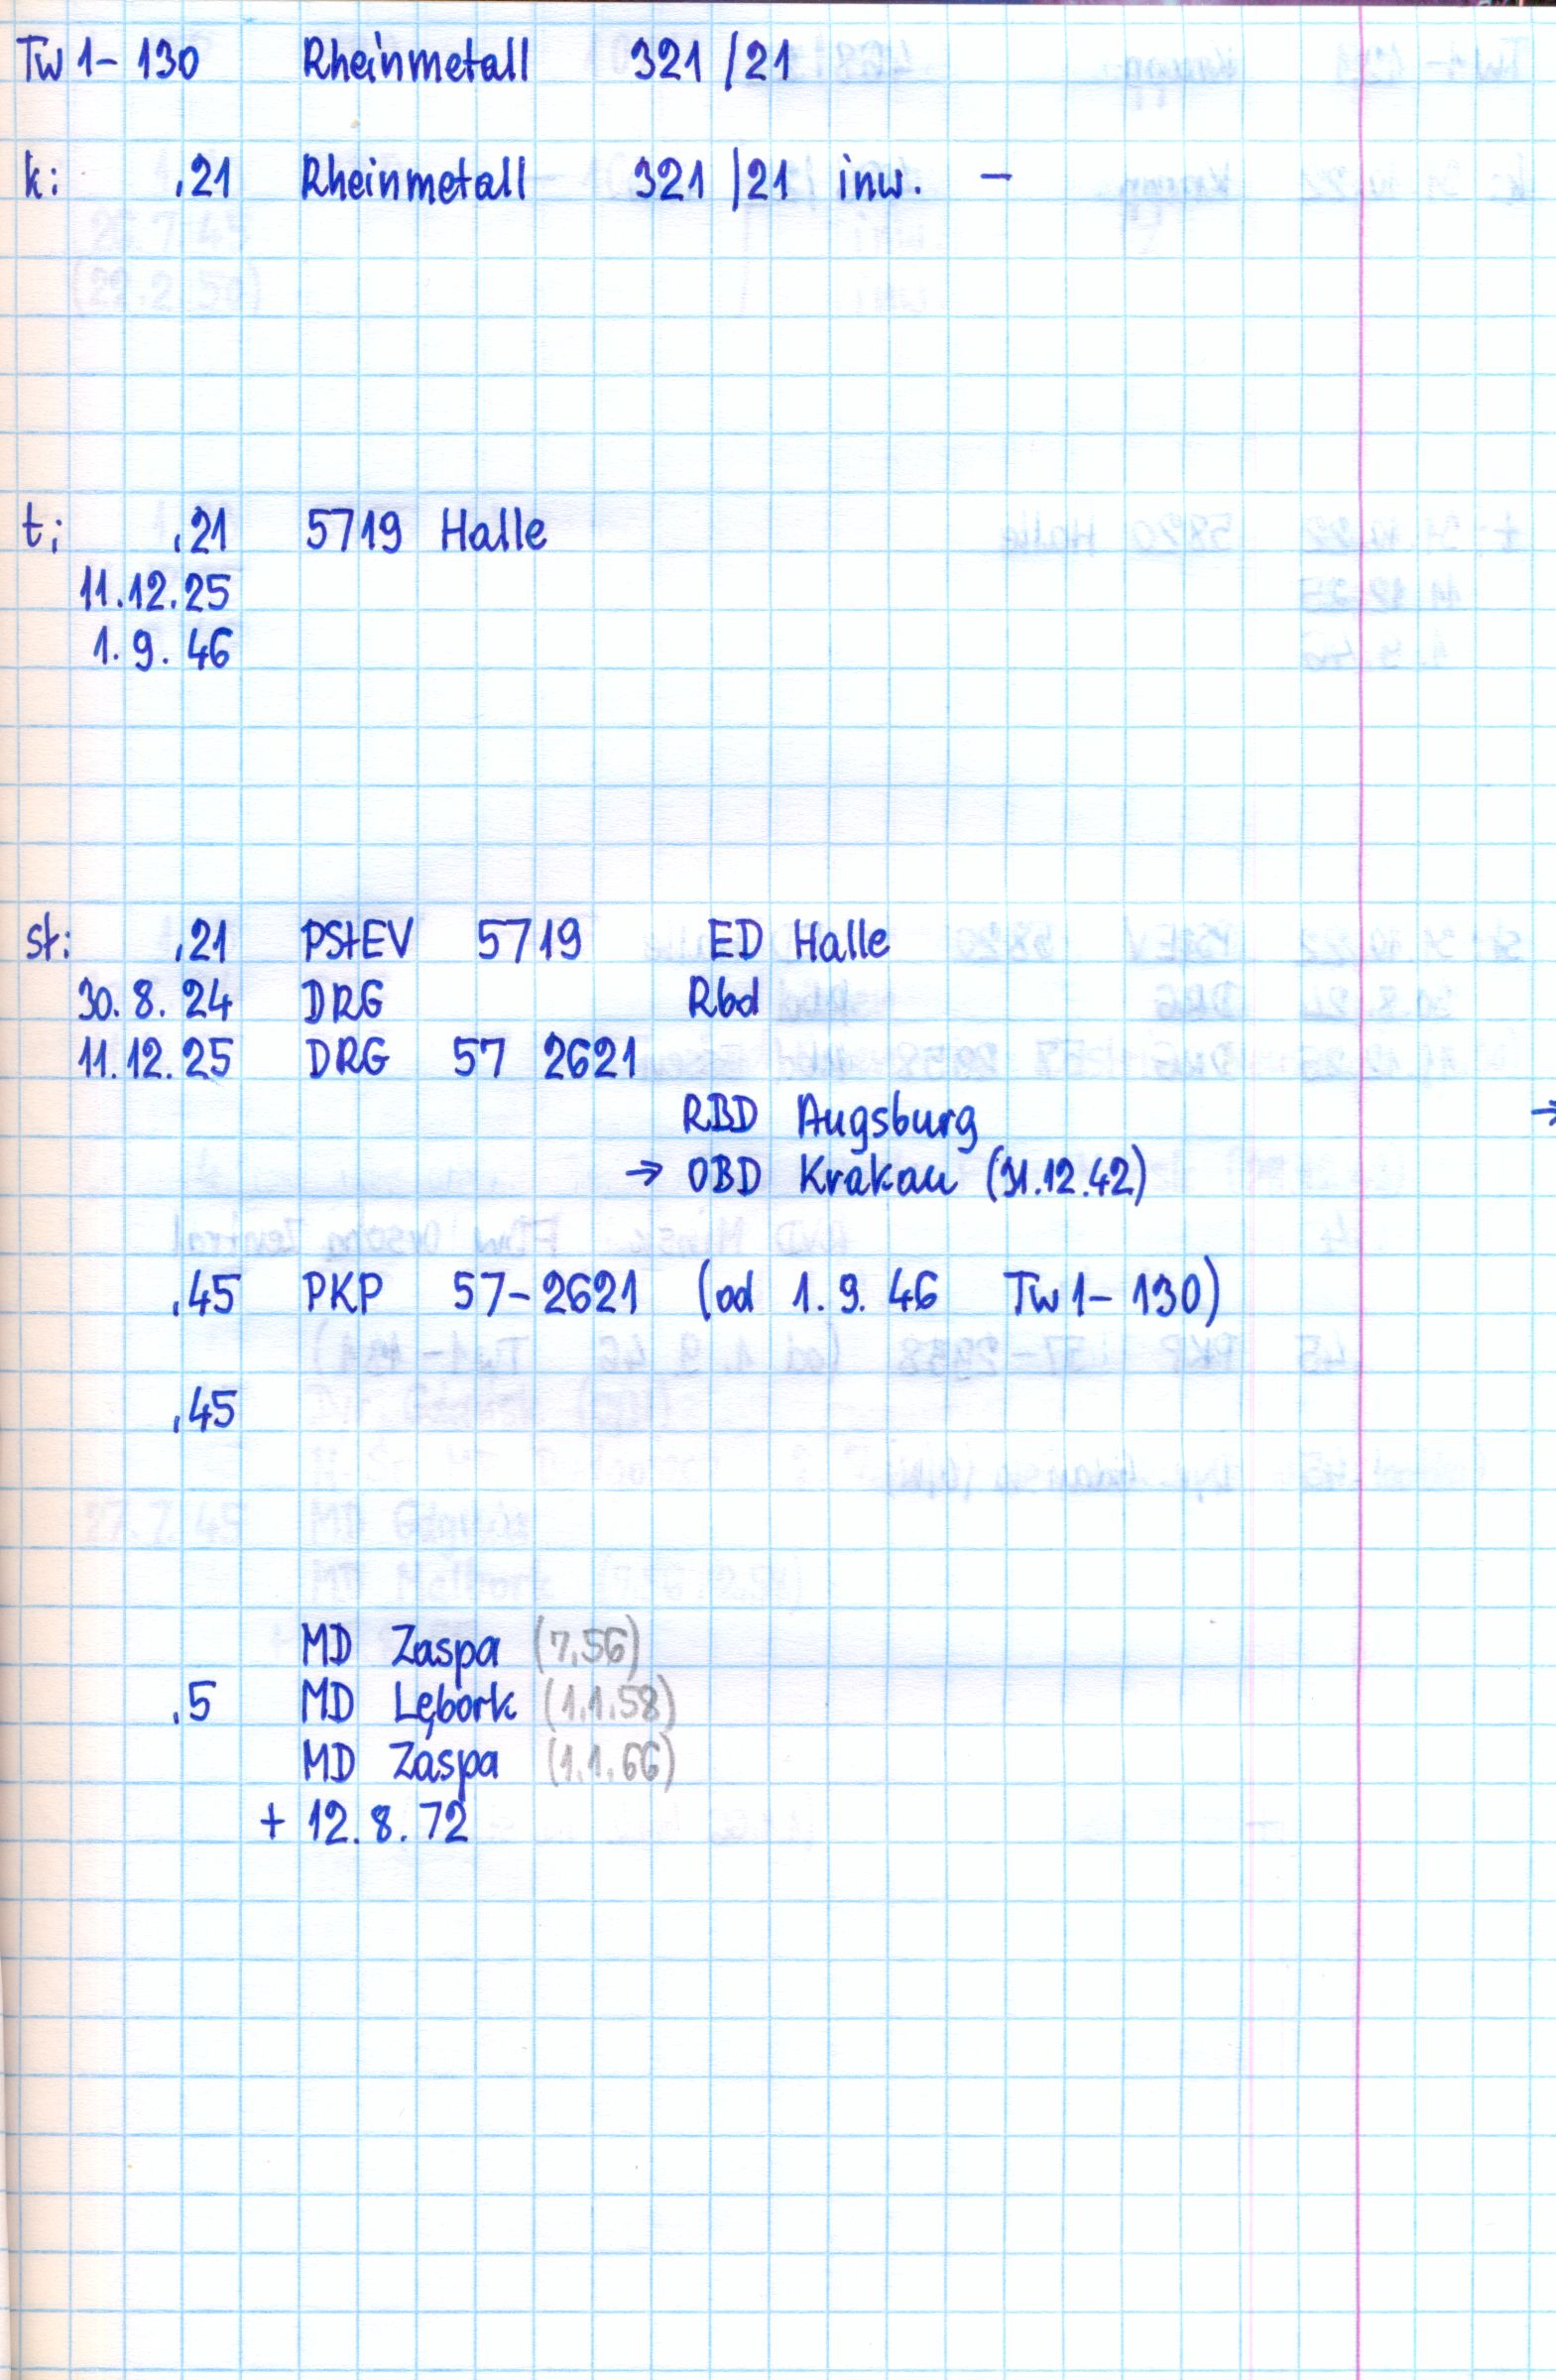 Tw 1-130 Rheinmetall 321/21
k: .21 Rheinmetall 321/21 inw. -
t: .21 5719 Halle
11.12.25
1.9.46
st: .21 PStEV 5719 ED Halle
30.8.24 DRG Rbd
11.12.25 DRG 57 2621
RBD Augsburg →
→ OBD Krakau (31.12.42)
.45 PKP 57-2621 (od 1.9.46 Tw 1-130)
.45
MD Zaspa (7.56)
.5 MD Lębork (1.1.58)
MD Zaspa (1.1.66)
+ 12.8.72